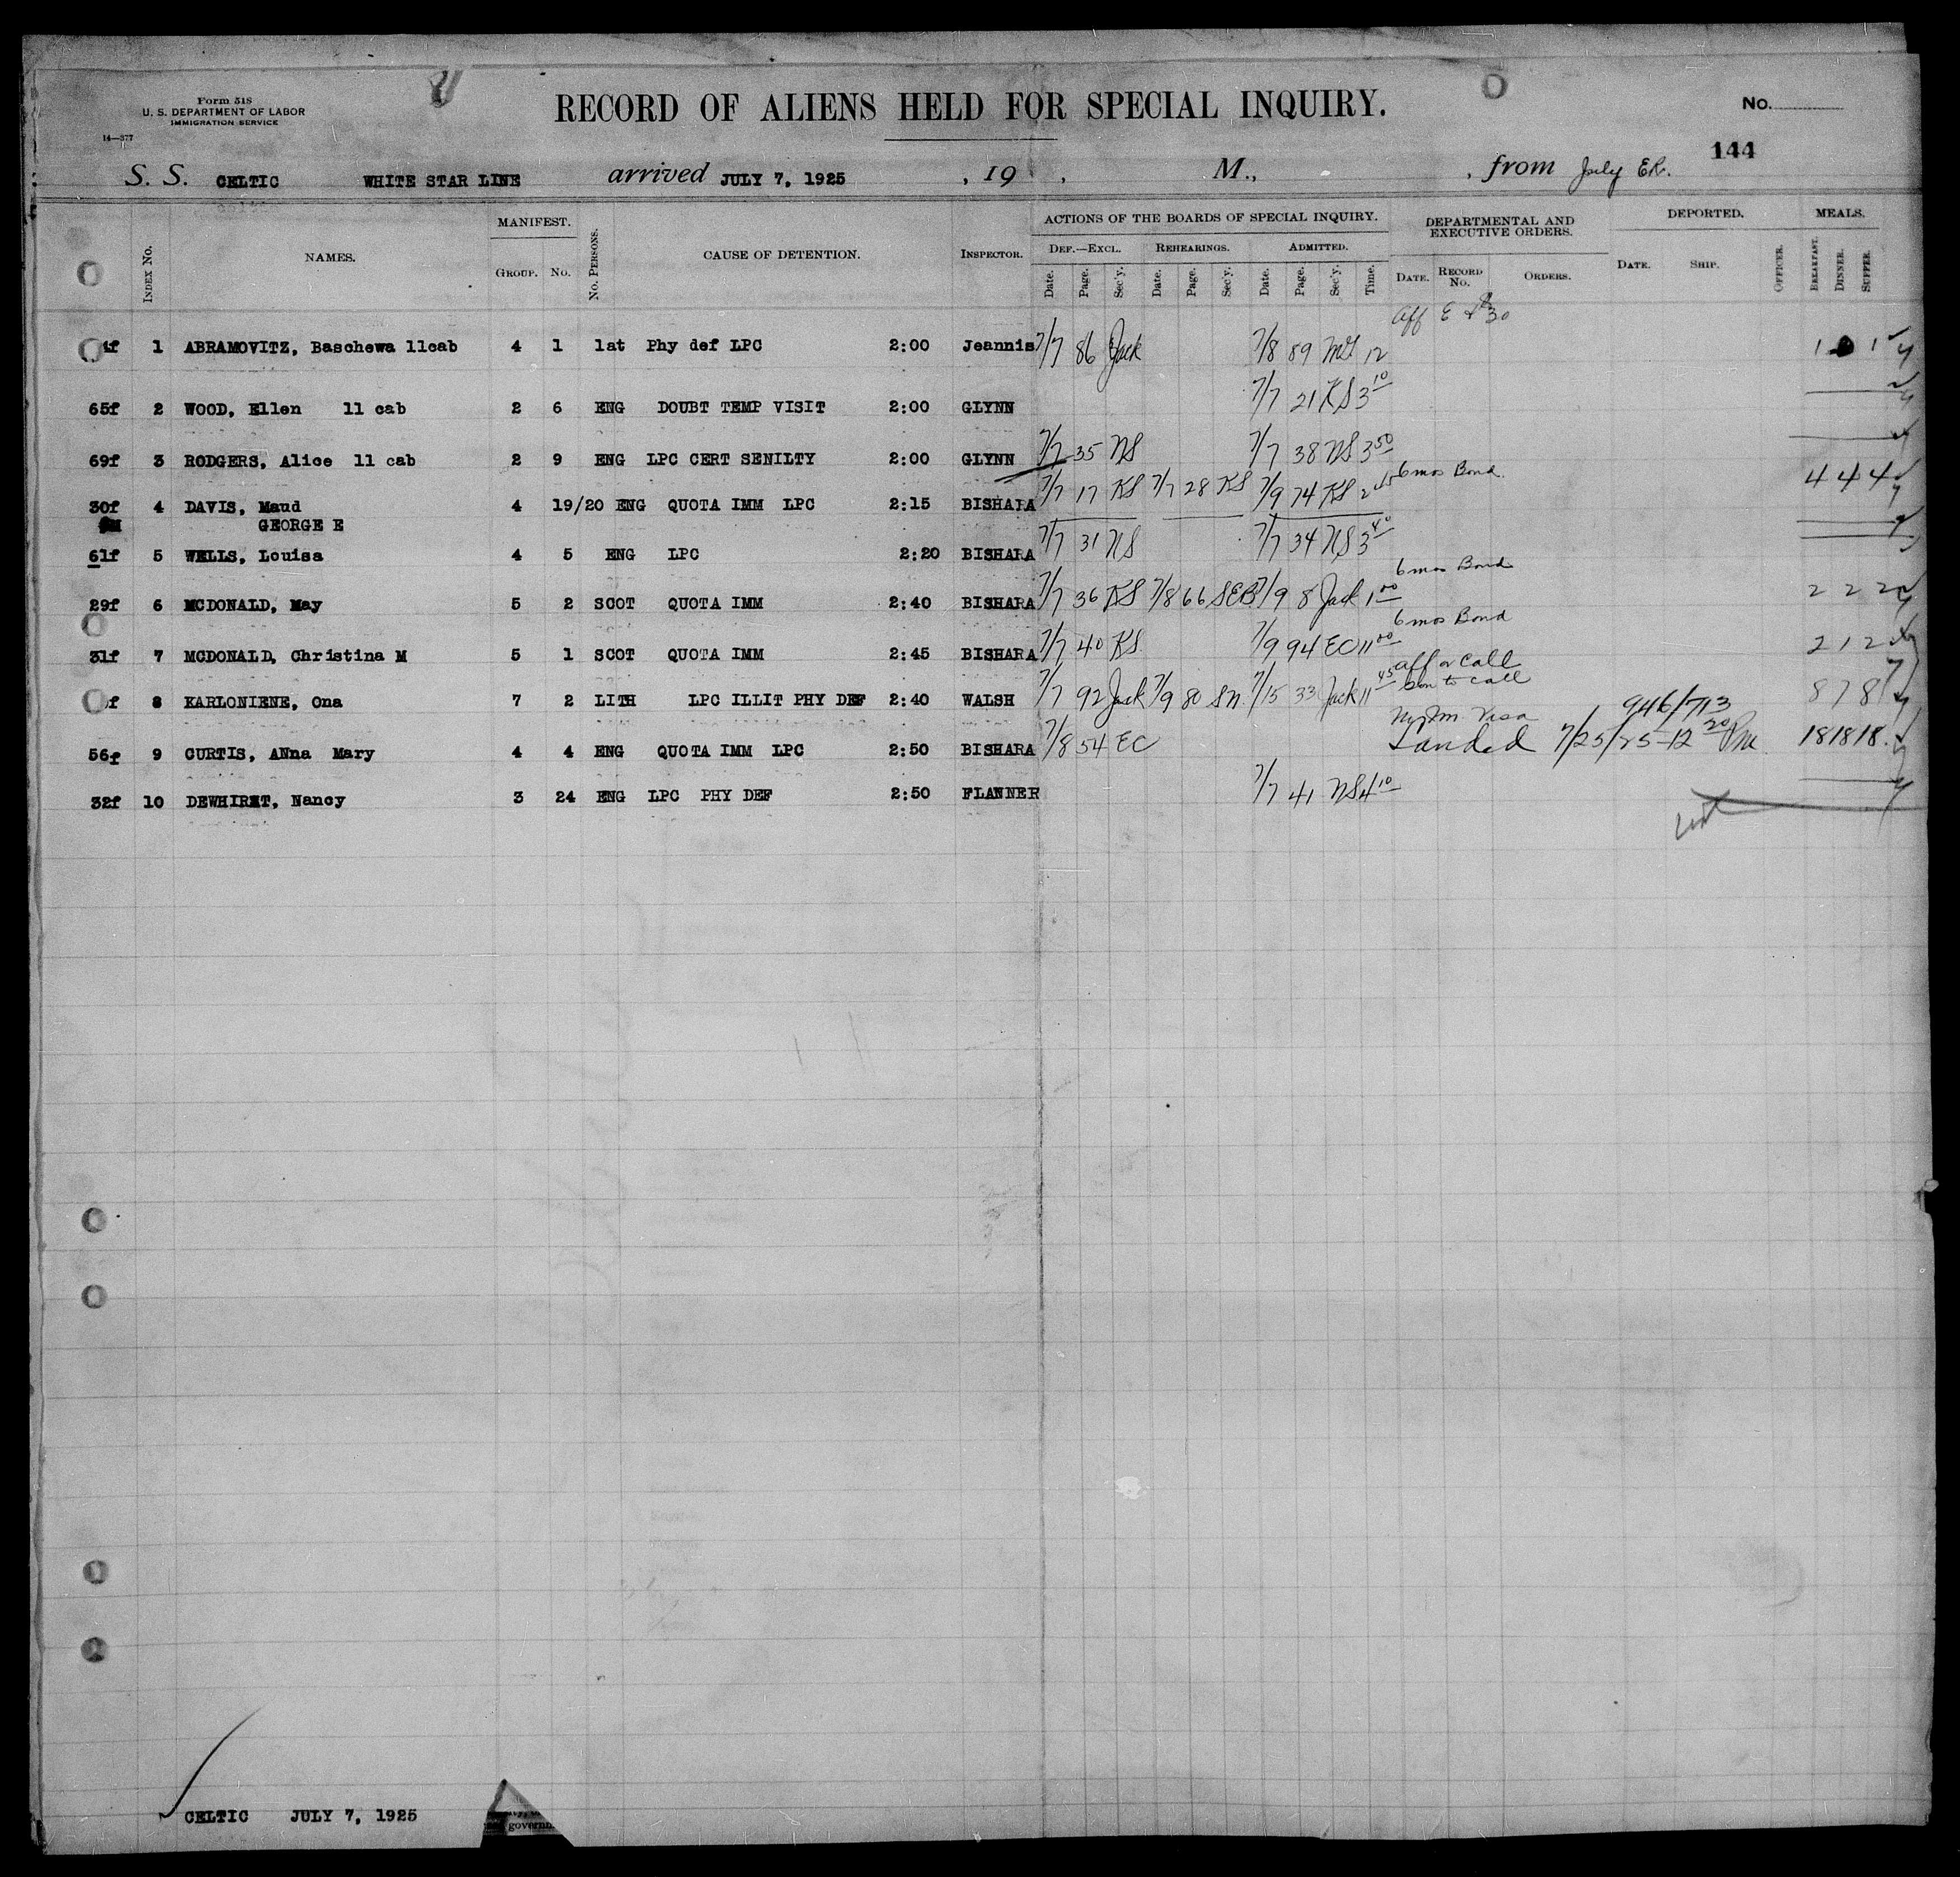 Form 518
U. S. DEPARTMENT OF LABOR
IMMIGRATION SERVICE
14—377
RECORD OF ALIENS HELD FOR SPECIAL INQUIRY.
No.
144
S. S. CELTIC WHITE STAR LINE arrived JULY 7, 1925 , 19 , M., , from July ER.
INDEX No. NAMES. MANIFEST. GROUP. No. No. PERSONS. CAUSE OF DETENTION. INSPECTOR. ACTIONS OF THE BOARDS OF SPECIAL INQUIRY. DEF.—EXCL. REHEARINGS. ADMITTED. DEPARTMENTAL AND EXECUTIVE ORDERS. DEPORTED. MEALS.
Date. Page. Sec'y. Date. Page. Sec'y. Date. Page. Sec'y. Time. DATE. RECORD No. ORDERS. DATE. SHIP. OFFICER. BREAKFAST. DINNER. SUPPER.
Aff E 30
f 1 ABRAMOVITZ, Baschewa 11cab 4 1 1at Phy def LPC 2:00 Jeannis 7/7 86 Jack 7/8 89 12 1 1
65f 2 WOOD, Ellen 11 cab 2 6 ENG DOUBT TEMP VISIT 2:00 GLYNN 7/7 21 KS 3 10
69f 3 RODGERS, Alice 11 cab 2 9 ENG LPC CERT SENILTY 2:00 GLYNN 7/7 35 NS 7/7 38 NS 3 50
30f 4 DAVIS, Maud 4 19/20 ENG QUOTA IMM LPC 2:15 BISHARA 7/7 17 KS 7/7 28 KS 7/9 74 KS 2 15 6 mos Bond 4 4 4
GEORGE E
61f 5 WELLS, Louisa 4 5 ENG LPC 2:20 BISHARA 7/7 31 NS 7/7 34 NS 3 40
29f 6 MCDONALD, May 5 2 SCOT QUOTA IMM 2:40 BISHARA 7/7 36 KS 7/8 66 SEB 7/9 8 Jack 1 00 6 mos Bond 2 2 2
31f 7 MCDONALD, Christina M 5 1 SCOT QUOTA IMM 2:45 BISHARA 7/7 40 KS 7/9 94 EC 11 00 6 mos Bond 2 1 2
f 8 KARLONIENE, Ona 7 2 LITH LPC ILLIT PHY DEF 2:40 WALSH 7/7 92 Jack 7/9 80 SN 7/15 33 Jack 11 45 aff or call son to call 8 7 8
946/713
56f 9 CURTIS, ANna Mary 4 4 ENG QUOTA IMM LPC 2:50 BISHARA 7/8 54 EC Visa Landed 7/25/25 - 12 20 Pm 18 18 18
32f 10 DEWHIRST, Nancy 3 24 ENG LPC PHY DEF 2:50 FLANNER 7/7 41 NS 4 10
CELTIC JULY 7, 1925
governm